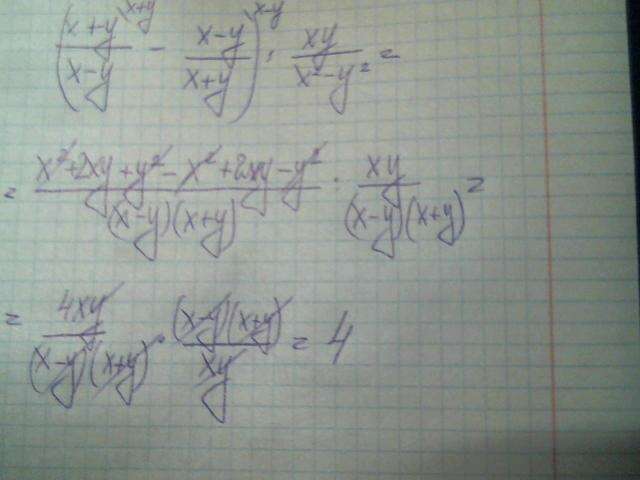 ((x+y)/(x-y)^(x+y) - (x-y)/(x+y)^(x-y)) : xy/(x²-y²) =
= (x²+2xy+y²-x²+2xy-y²)/((x-y)(x+y)) : xy/((x-y)(x+y)) =
= 4xy/((x-y)(x+y)) · ((x-y)(x+y))/xy = 4